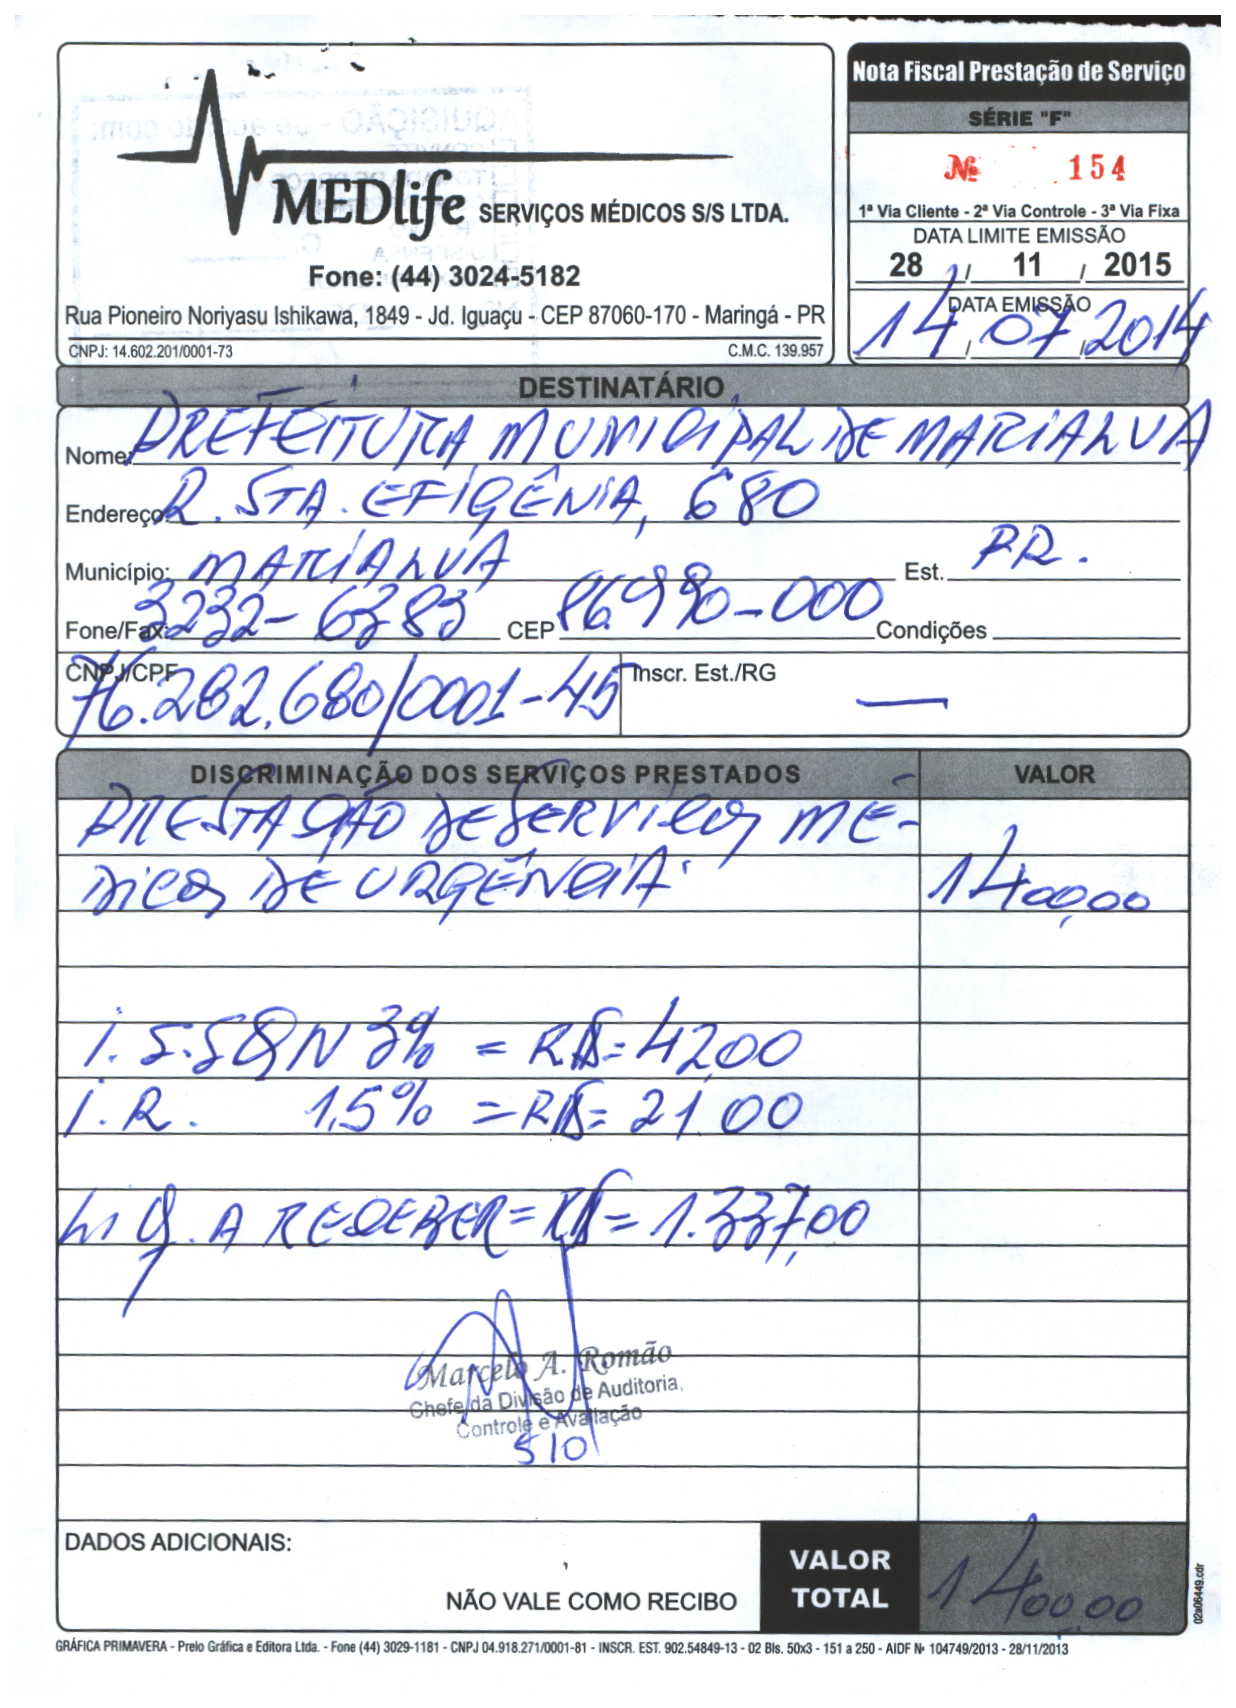 Nota Fiscal Prestação de Serviço
SÉRIE "F"
Nº 154
1ª Via Cliente - 2ª Via Controle - 3ª Via Fixa
DATA LIMITE EMISSÃO
28 / 11 / 2015
DATA EMISSÃO
14 / 07 / 2014
MEDlife SERVIÇOS MÉDICOS S/S LTDA.
Fone: (44) 3024-5182
Rua Pioneiro Noriyasu Ishikawa, 1849 - Jd. Iguaçu - CEP 87060-170 - Maringá - PR
CNPJ: 14.602.201/0001-73 C.M.C. 139.957
DESTINATÁRIO
Nome: PREFEITURA MUNICIPAL DE MARIALVA
Endereço: R. STA. EFIGÊNIA, 680
Município: MARIALVA Est. PR.
Fone/Fax: 3232-6383 CEP 86.990-000 Condições
CNPJ/CPF 76.282.680/0001-45 Inscr. Est./RG —
DISCRIMINAÇÃO DOS SERVIÇOS PRESTADOS VALOR
PRESTAÇÃO DE SERVIÇOS MÉ-
DICOS DE URGÊNCIA. 1400,00
I.S.SQN 3% = R$= 42,00
I.R. 1,5% = R$= 21.00
LIQ. A RECEBER = R$= 1.337,00
Marcelo A. Romão
Chefe da Divisão de Auditoria,
Controle e Avaliação
510
DADOS ADICIONAIS:
NÃO VALE COMO RECIBO
VALOR TOTAL 1400,00
02a06449.cdr
GRÁFICA PRIMAVERA - Prelo Gráfica e Editora Ltda. - Fone (44) 3029-1181 - CNPJ 04.918.271/0001-81 - INSCR. EST. 902.54849-13 - 02 Bls. 50x3 - 151 a 250 - AIDF Nº 104749/2013 - 28/11/2013